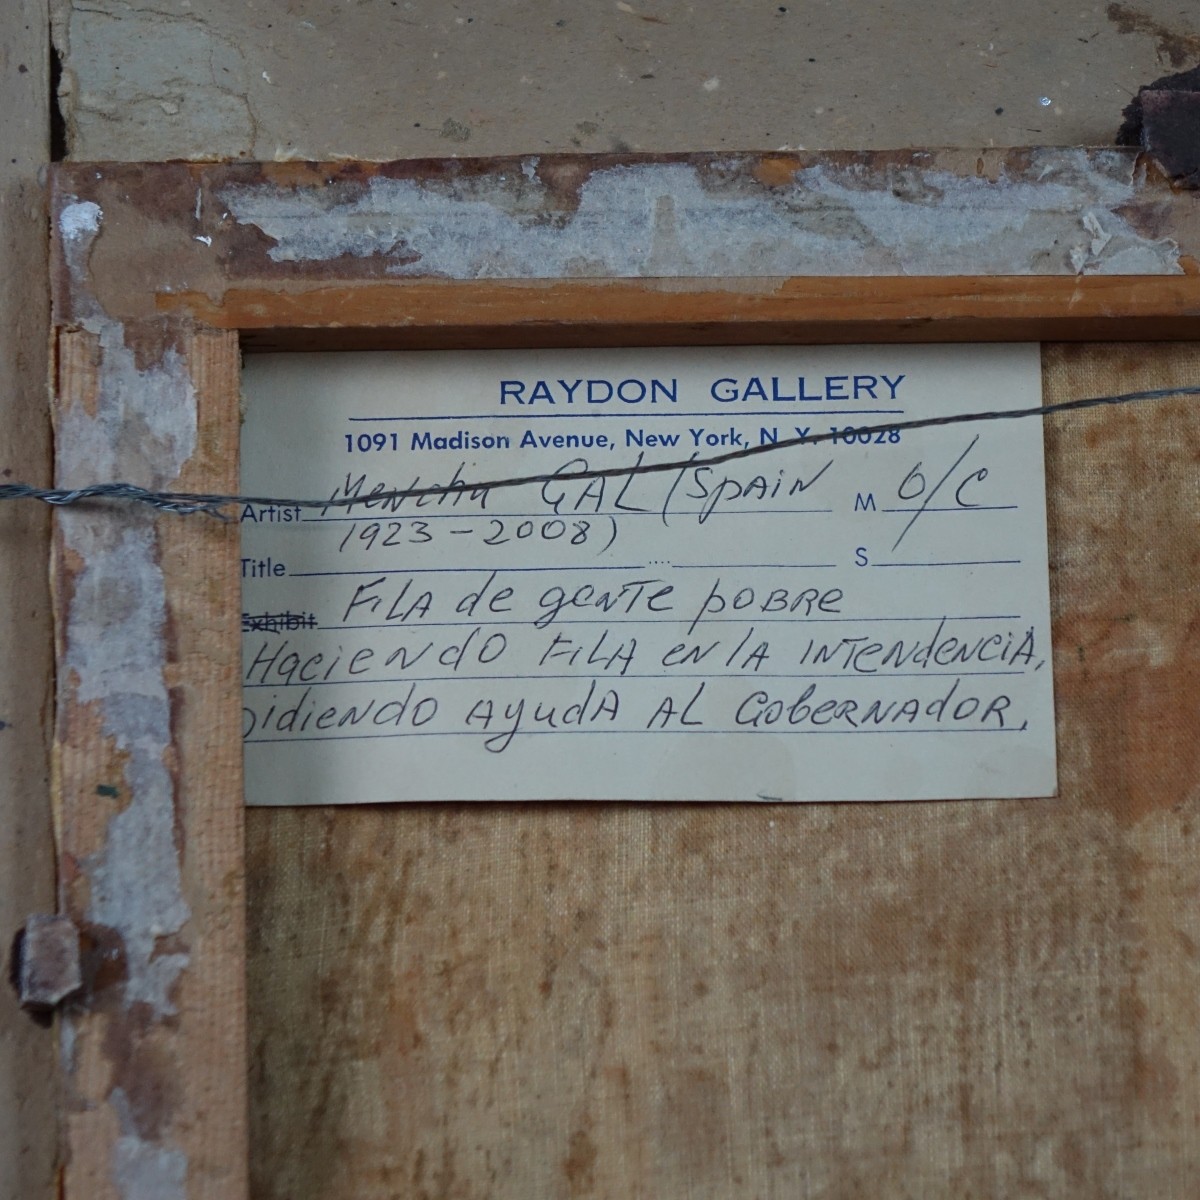 RAYDON GALLERY
1091 Madison Avenue, New York, N.Y. 10028
Artist Menchu GAL (SpAiN M O/C
1923-2008)
Title S
Exhibit FiLA de geNTe pOBRe
HacieNdO FiLA eN lA iNTeNdeNciA,
pidieNdO AyudA AL GobeRNAdOR.